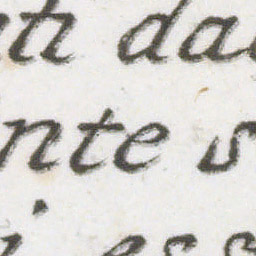 ti dal
nte s
i ess